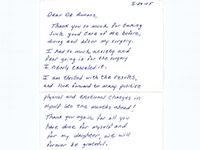 Dear Dr
Thank you so much for taking
such good care of me before,
during and after my surgery.
I had so much anxiety and
fear going in for the surgery
I nearly canceled it.
I am thrilled with the results,
and look forward to many positive
physical and emotional changes in
myself in the months ahead!
Thank you again for all you
have done for myself and
for my daughter, we will
forever be grateful.